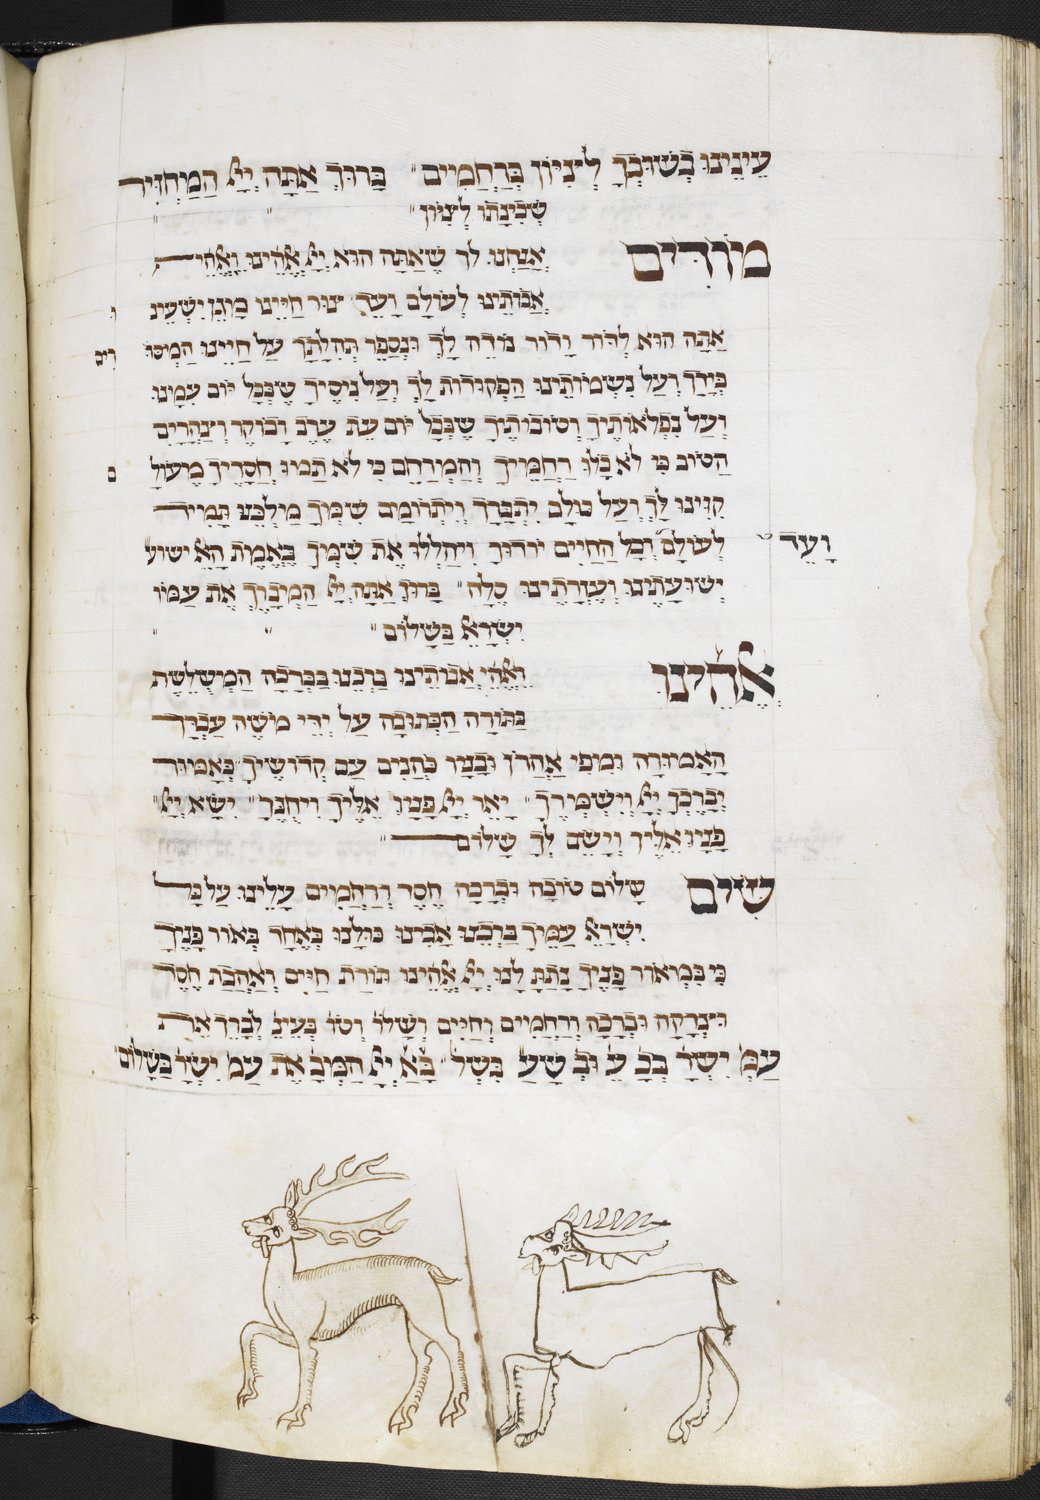 עֵינֵינוּ בְּשׁוּבְךָ לְצִיּוֹן בְּרַחֲמִיִם׃ בָּרוּךְ אַתָּה יְיָ הַמַּיחְזִיר
שְׁכִינָתוֹ לְצִיּוֹן׃
מוֹדִים אֲנַחְנוּ לך שֶׁאַתָּה הוּא יְיָ אֱלֹהֵינוּ וֵאֱלֹהֵי
אֲבוֹתֵינוּ לְעוֹלָם וָעֶד צוּר חַיֵּינוּ מָגֵן יִשְׁעֵינ ו
אַתָּה הוּא לְדוֹר וָדוֹר נוֹדֶה לָךְ וּנְסַפֵּר תְּהִלָּתָךְ עַל חַיֵּינוּ הַמְּיסוּ רים
בְּיָדָךְ וְעַל נִשְׁמוֹתֵינוּ הַפְּקוּדוֹת לָךְ וְעַל נִיסֶיךָ שֶׁבְּכָל יוֹם עִמָּינוּ
וְעַל נִפְלְאוֹתֶיךָ וְטוֹבוֹתֶיךָ שֶׁבְּכָל יוֹם עֵת עֶרֶב וָבוֹקֶר וְצָהֳרָיִם
הַטּוֹב כִּי לֹא כָלוּ רַחֲמֶיךָ וְהַמְרַחֵם כִּי לֹא תַמּוּ חֲסָדֶיךָ מֵעוֹלָ ם
קִוִּינוּ לָךְ וְעַל כּוּלָּם יִתְבָּרַךְ וְיִתְרוֹמַם שִׁמְךָ מַלְכֵּנוּ תָּמִיד
וָעֶד לְעוֹלָם וְכָל הַחַיִּים יוֹדוּךָ וִיהַלְלוּ אֶת שִׁמְךָ בֶּאֱמֶת הָאֵ ישוע
יְשׁוּעָתֵינוּ וְעֶזְרָתֵינוּ סֶלָה׃ בָּרוּךְ אַתָּה יְיָ הַמְבָרֵךְ אֶת עַמּוֹ
יִשְׂרָאֵ בַּשָּׁלוֹם׃
אֱלֹהֵינוּ וֵאלֹהֵי אֲבוֹתֵינוּ בָּרְכֵנוּ בַּבְּרָכָה הַמְשֻׁלֶּשֶׁת
בַּתּוֹרָה הַכְּתוּבָה עַל יְדֵי מֹשֶׁה עַבְדָּךְ
הָאֲמוּרָה וּמִפִּי אַהֲרֹן וּבָנָיו כֹּהֲנִים עַם קְדוֹשֶׁיךָ כָּאָמוּר
יְבָרֶכְךָ יְיָ וְיִשְׁמְרֶךָ׃ יָאֵר יְיָ פָּנָיו אֵלֶיךָ וִיחֻנֶּךָּ׃ יִשָּׂא יְיָ
פָּנָיו אֵלֶיךָ וְיָשֵׂם לְךָ שָׁלוֹם׃
שִׂים שָׁלוֹם טוֹבָה וּבְרָכָה חֶסֶד וְרַחֲמִים עָלֵינוּ עַל כָּל
יִשְׂרָאֵ עַמֶּךָ בָּרְכֵנוּ אָבִינוּ כּוּלָּנוּ כְּאֶחָד בְּאוֹר פָּנֶיךָ
כִּי בִּמְאוֹר פָּנֶיךָ נָתַתָּ לָּנוּ יְיָ אֱלֹהֵינוּ תּוֹרַת חַיִּים וְאַהֲבַת חֶסֶד
וּצְדָקָה וּבְרָכָה וְרַחֲמִיִם וְחַיִּים וְשָׁלוֹ וְטוֹ בְּעֵינֶי לְבָרֵךְ אֶת
עַמְּ יִשְׂרָ בְּכָ עֵ וּבְ שָׁעַ בִּשְׁלֹ׃ בָּ אַ יְיָ הַמְבָ אֶת עַמּ יִשְׂרָ בַּשָּׁלוֹם׃